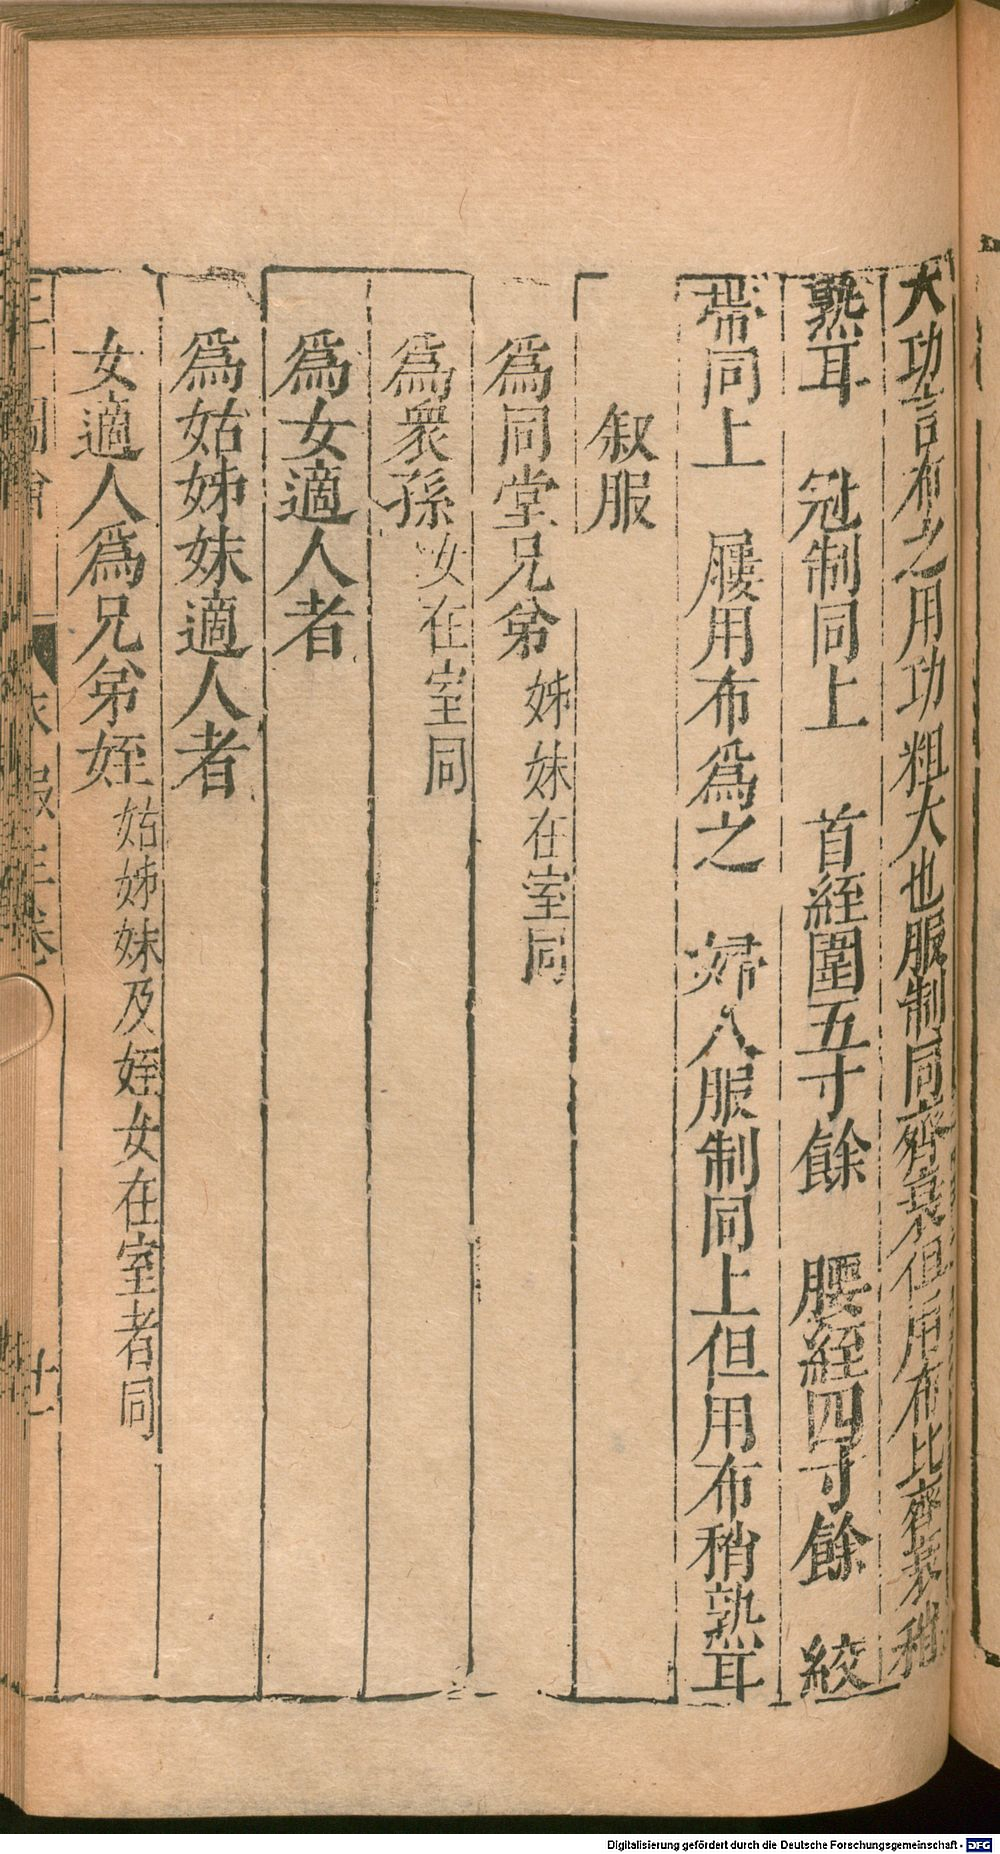 大功言布之用功粗大也服制同齊衰但用布比齊衰稍
熟耳　冠制同上　首絰圍五寸餘　腰絰四寸餘　絞
帶同上　屨用布爲之　婦人服制同上但用布稍熟耳
叙服
爲同堂兄弟姊妹在室同
爲衆孫女在室同
爲女適人者
爲姑姊妹適人者
女適人爲兄弟姪姑姊妹及姪女在室者同
圖會　衣服三卷　十一
Digitalisierung gefördert durch die Deutsche Forschungsgemeinschaft - DFG